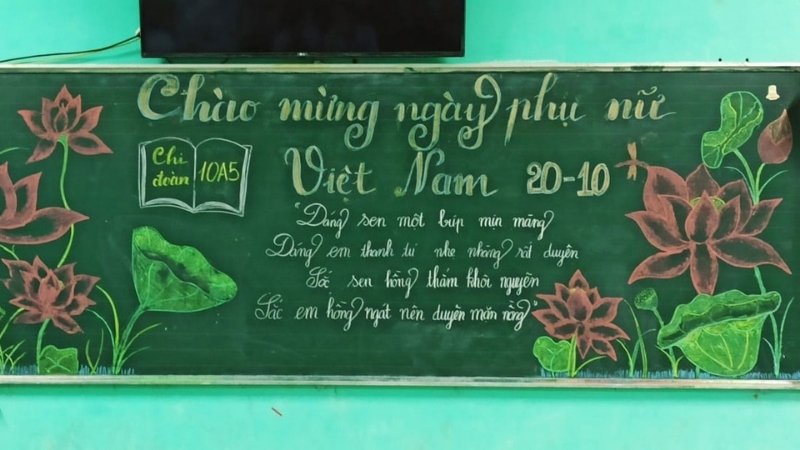 Chào mừng ngày phụ nữ
Chi
đoàn
10A5
Việt Nam 20-10
"Dáng sen một búp mịn màng
Dáng em thanh tú nhẹ nhàng rất duyên
Sắc sen hồng thắm khôi nguyên
Sắc em hồng ngát nên duyên mặn nồng"